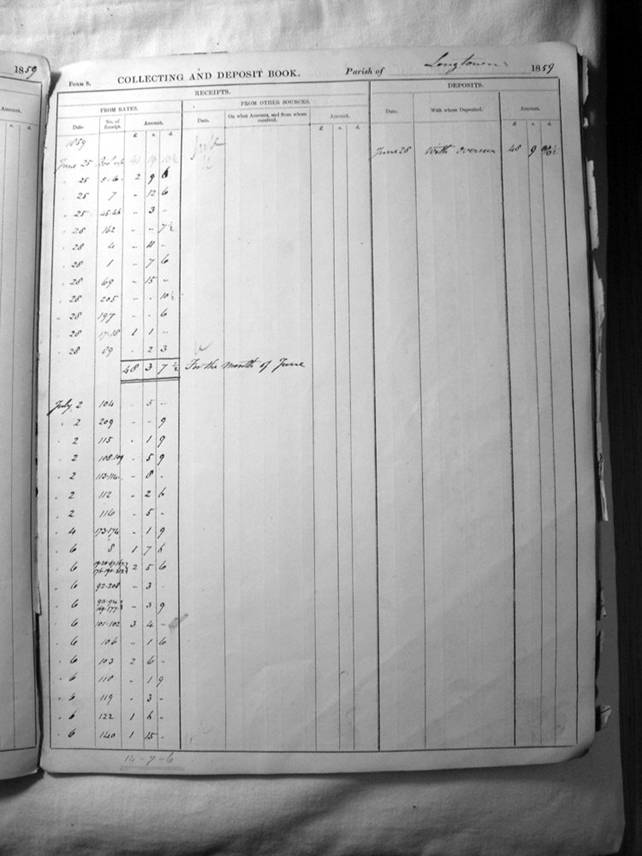 1859
FORM 8. COLLECTING AND DEPOSIT BOOK. Parish of Longtown 1859
RECEIPTS. DEPOSITS.
FROM RATES. FROM OTHER SOURCES.
Date. No. of Receipt. Amount. Date. On what Account, and from whom received. Amount. Date. With whom Deposited. Amount.
£ s. d. £ s. d. £ s. d.
Amount.
s. d.
1859
June 25
June 28 With Overseer 48 9
" 25 5.6 2 9 6
" 25 7 - 12 6
" 25 45.46 - 3 -
" 28 162 - - 7½
" 28 4 - 11 -
" 28 1 - 7 6
" 28 69 - 15 -
" 28 205 - . 10½
" 28 197 - . 6
" 28 17.18 1 1 -
" 28 59 . 2 3
48 3 7½ For the Month of June
July 2 104 . 5 -
" 2 209 . - 9
" 2 115 . 1 9
" 2 108.109 - 5 9
" 2 113.114 - 8 -
" 2 112 - 2 6
" 2 116 - 5 -
" 4 173.174 - 1 9
" 6 8 1 7 6
" 6 2 5 6
" 6 92.208 - 3 -
" 6 - 3 9
" 6 101.102 3 4 -
" 6 106 - 1 6
" 6 103 2 6 -
" 6 110 - 1 9
" 6 119 - 3 -
" 6 122 1 6 -
" 6 140 1 15 -
14-7-6